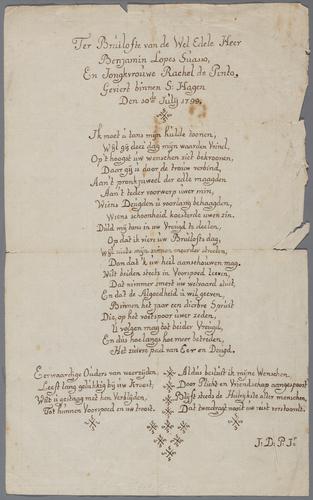 Ter Bruilofte van de Wel Edele Heer
Benjamin Lopes Suasso,
En Jongvrouwe Rachel de Pinto,
Geviert binnen S: Hagen
Den 10de July 1799.
Ik moet u tans mijn hulde toonen,
Wijl gij deez' dag mijn waarden Vrind,
Op't hoogst uw wenschen ziet bekroonen,
Daar gij u door de trouw verbind,
Aan't pronkjuweel der edle maagden
Aan't teder voorwerp uwer min,
Wiens Deugden u voorlang behaagden,
Wiens schoonheid koesterde uwen zin.
Duld mij tans in uw Vreugd te deelen,
Op dat ik viere uw Bruilofts dag,
Wijl niets mijn zinnen meerder streelen,
Dan dat 'k uw heil aanschouwen mag.
Wilt beiden steets in Voorspoed leeven,
Dat nimmer smert uw welvaard stuit,
En dat de Algoedheid u wil geeven,
Binnen het jaar een dierbre Spruit
Die, op het voetspoor uwer zeden,
U volgen mag tot beider Vreugd,
En dus hoe langs hoe meer betreden,
Het zuivre pad van Eer en Deugd.
Eerwaardige Ouders van weerzijden,
Leeft lang gelukkig bij uw Kroost;
Wilt u gestaag met hen Verblijden,
Tot hunner Voorspoed en uw troost.
Aldus besluit ik mijne Wenschen,
Door Plicht en Vriendschap aangespoort
Blijft steeds de Huwlyksste aller menschen,
Dat tweedragt nooit uw rust verstoort.
J: D: P: Jr